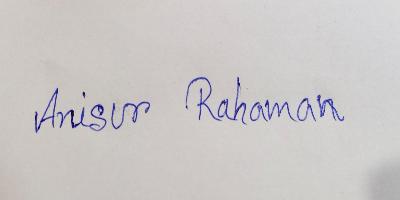 Anisur Rahaman